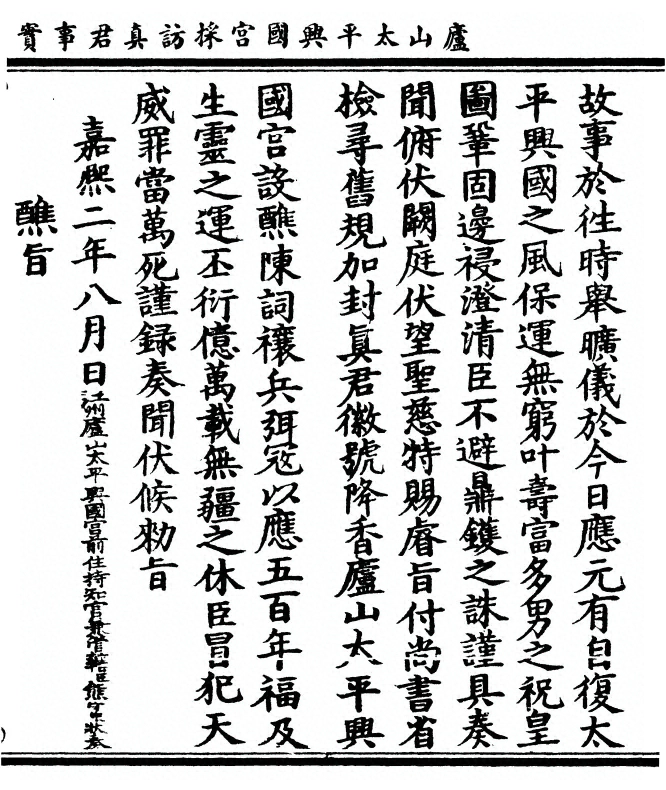 廬山太平興國宮採訪真君事實
故事於徃時舉曠儀於今日應元有自復太
平興國之風保運無窮叶壽富多男之祝皇
圖鞏固邊祲澄清臣不避鼎鑊之誅謹具奏
聞俯伏闕庭伏望聖慈特賜睿旨付尚書省
檢尋舊規加封眞君徽號降香廬山太平興
國宮設醮陳詞禳兵弭宼以應五百年福及
生靈之運丕衍億萬載無疆之休臣冒犯天
威罪當萬死謹録奏聞伏候勑旨
嘉熙二年八月日江州廬山太平興國宮前住持知宮兼管轄臣熊守中狀奏
醮旨